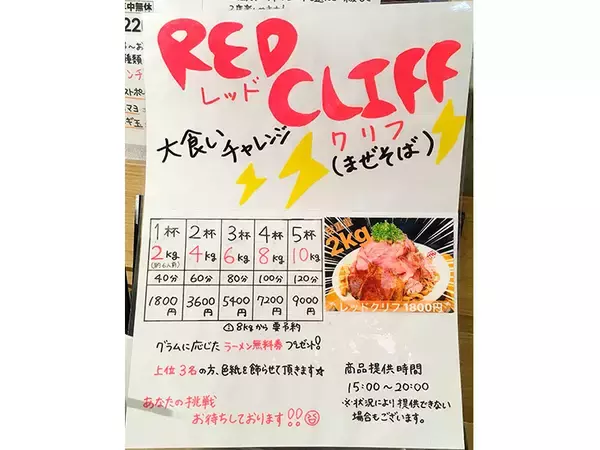 中無休
22
RED
レッド
CLIFF
クリフ
大食いチャレンジ
(まぜそば)
1杯 2杯 3杯 4杯 5杯
2kg 4kg 6kg 8kg 10kg
(約6人前)
40分 60分 80分 100分 120分
1800円 3600円 5400円 7200円 9000円
8kgから要予約
グラムに応じたラーメン無料券プレゼント!
上位3名の方、色紙を飾らせて頂きます☆
あなたの挑戦
お待ちしております!!
総重量
2kg
レッドクリフ 1800円
商品提供時間
15:00~20:00
※状況により提供できない
場合もございます。